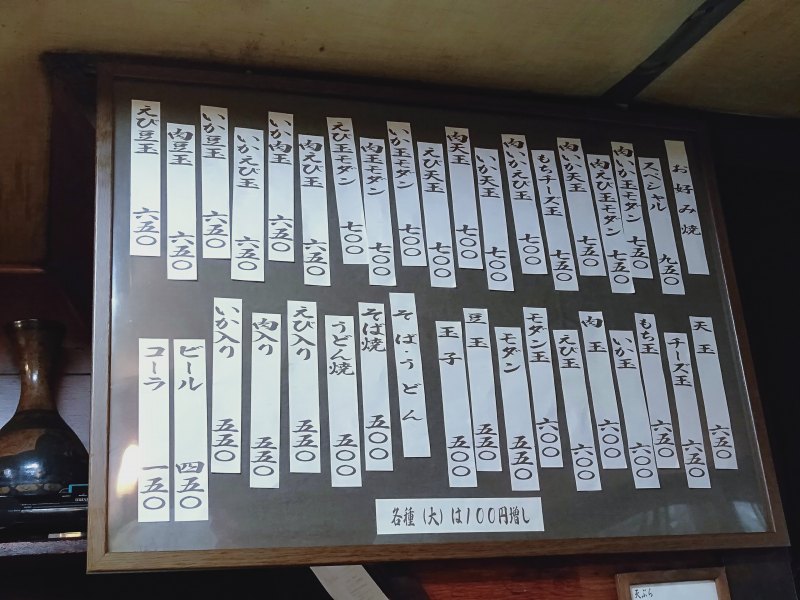 お好み焼
スペシャル 九五〇
肉いか玉モダン 七五〇
肉えび玉モダン 七五〇
肉いか天玉 七五〇
もちチーズ玉 七五〇
肉いかえび玉 七〇〇
いか天玉 七〇〇
肉天玉 七〇〇
えび天玉 七〇〇
いか玉モダン 七〇〇
肉玉モダン 七〇〇
えび玉モダン 七〇〇
肉えび玉 六五〇
いか肉玉 六五〇
いかえび玉 六五〇
いか豆玉 六五〇
肉豆玉 六五〇
えび豆玉 六五〇
天玉 六五〇
チーズ玉 六五〇
もち玉 六五〇
いか玉 六〇〇
肉玉 六〇〇
えび玉 六〇〇
モダン玉 六〇〇
モダン 五五〇
豆玉 五五〇
玉子 五〇〇
そば・うどん
そば焼 五〇〇
うどん焼 五〇〇
えび入り 五五〇
肉入り 五五〇
いか入り 五五〇
ビール 四五〇
コーラ 一五〇
各種(大)は100円増し
天ぷら